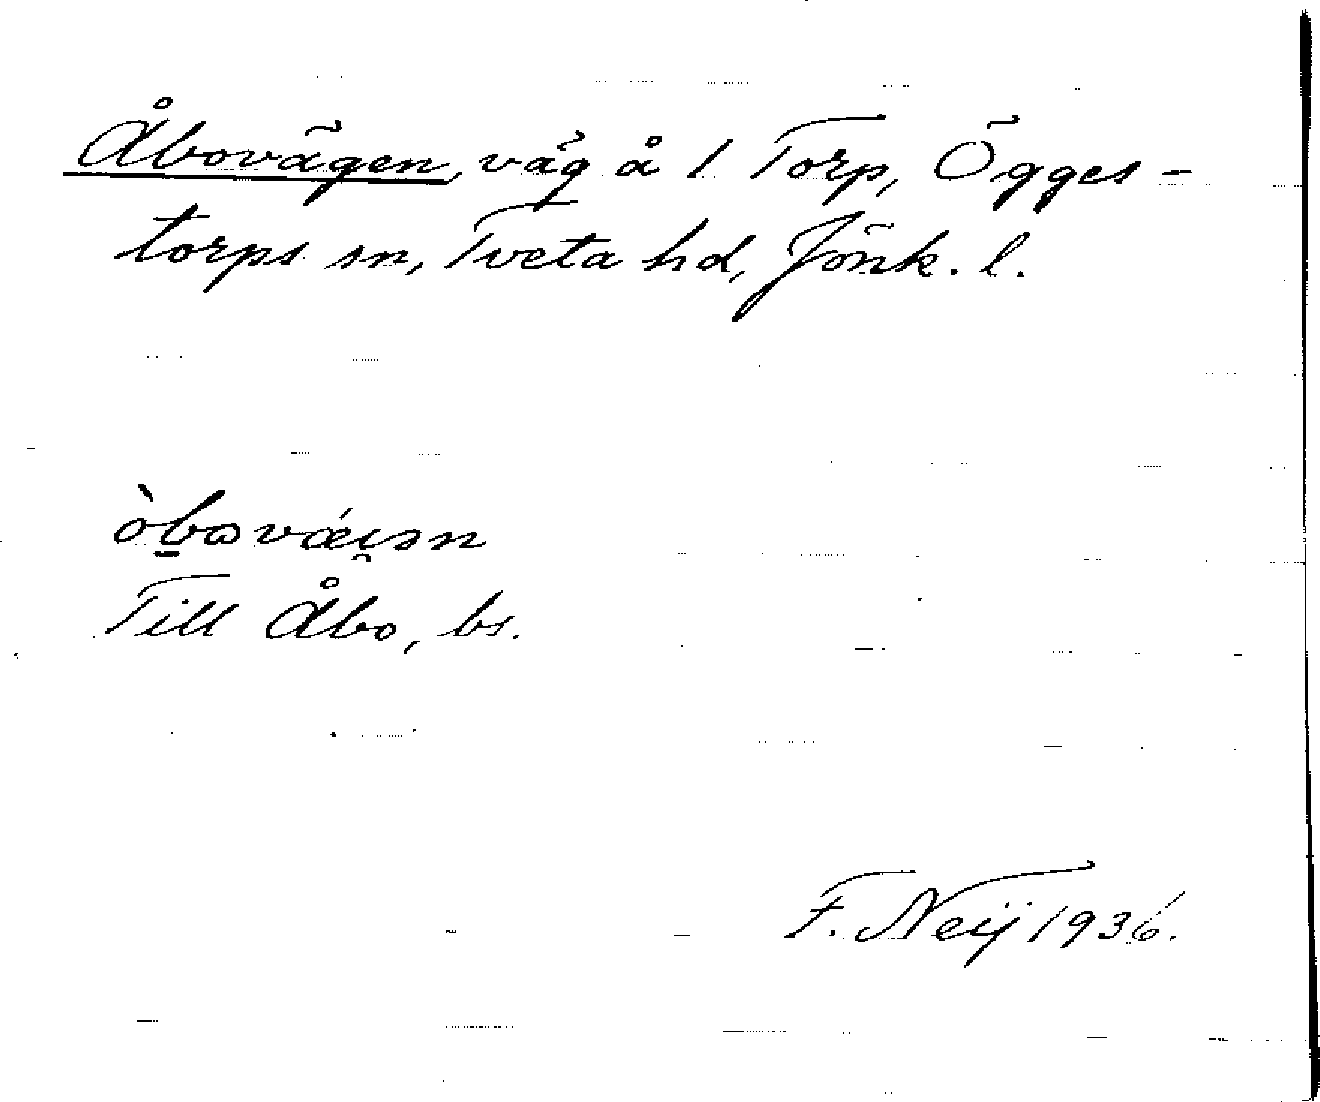 Åbovägen, väg å 1 Torp, Ögges-
torps sn, Tveta hd, Jönk. l.
òb̲ωvǽi̯ən
Till Åbo, bs.
F. Neij 1936.